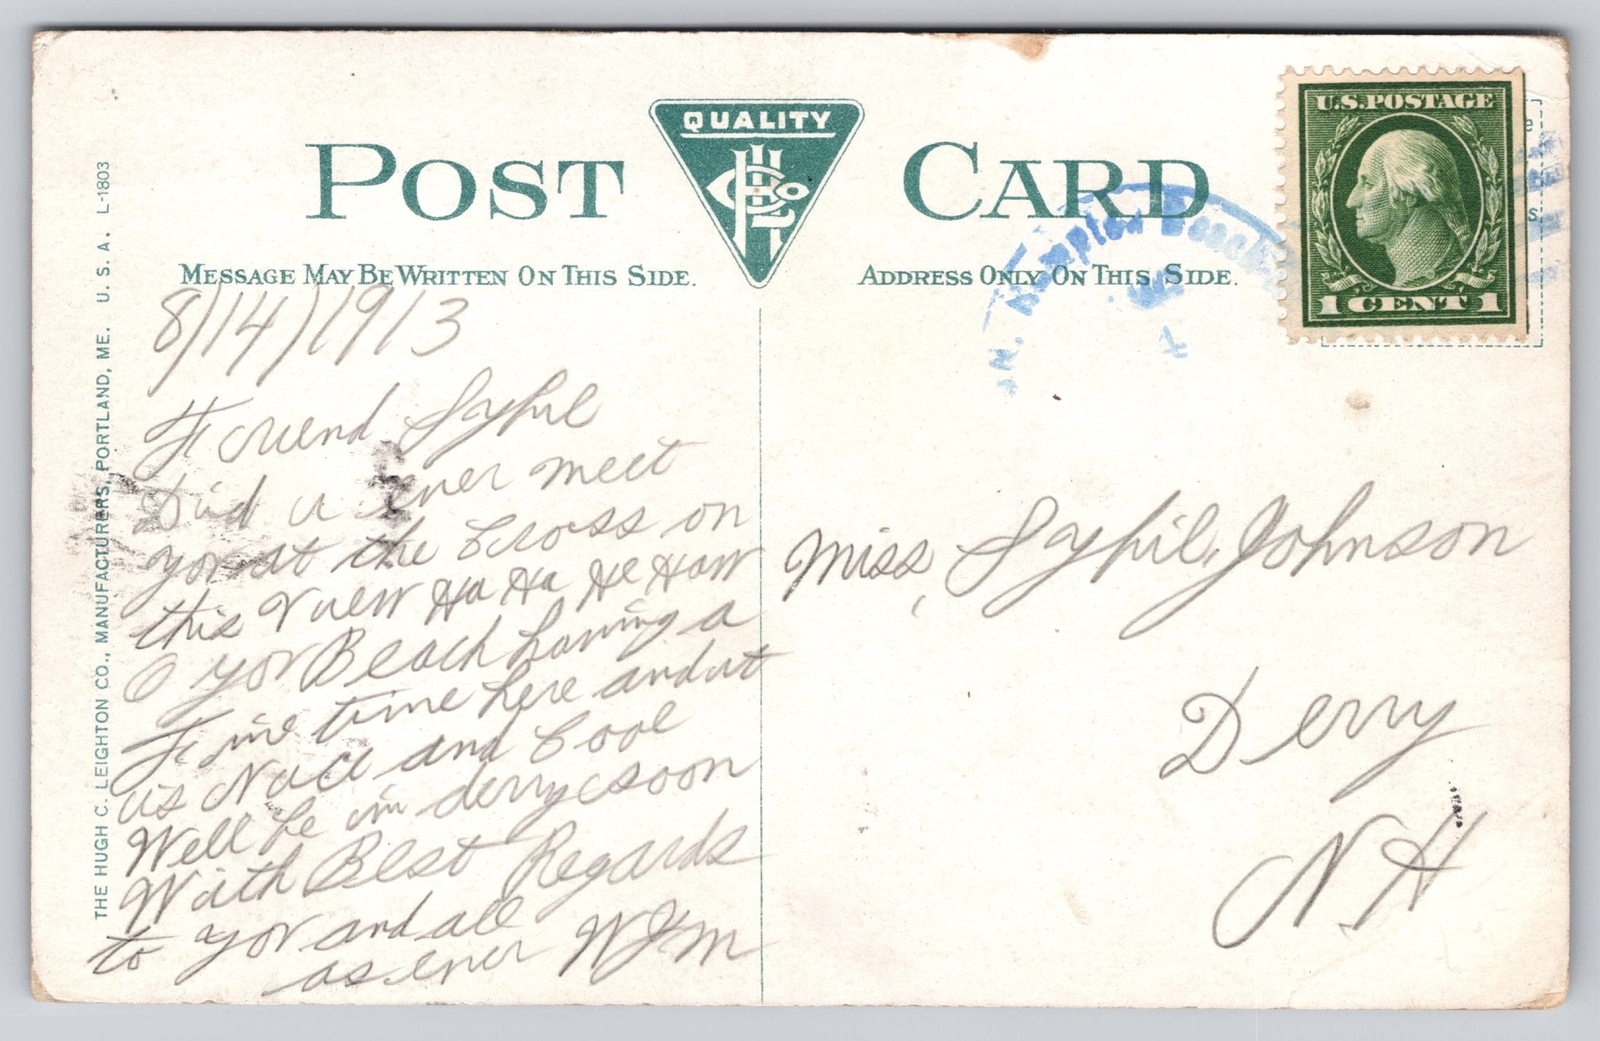 QUALITY
POST CARD
MESSAGE MAY BE WRITTEN ON THIS SIDE.
ADDRESS ONLY ON THIS SIDE.
U.S. POSTAGE
1 CENT 1
Hampton Beach
THE HUGH C. LEIGHTON CO., MANUFACTURERS, PORTLAND, ME. U. S. A. L-1803
8/14/1913
Friend Sybil
Did u ever meet
yor at the Cross on
this View Ha Ha He Haw
O yor Beach having a
Fine time here and
is Nice and Cool
Well be in derry soon
With Best Regards
to yor and all
as ever WJM
Miss, Sybil, Johnson
Derry
N.H